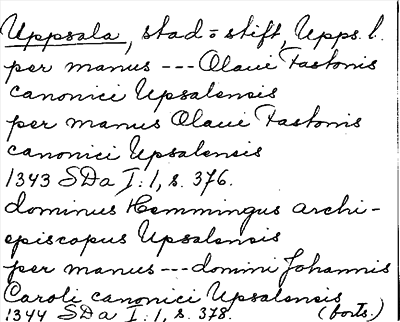 Uppsala, stad = stift, Upps. l.
per manus --- Olaui Fastonis
canonici Upsalensis
per manus Olaui Fastonis
canonici Upsalensis
1343 SDa I:1, s. 376.
dominus Hemmingus archi-
episcopus Upsalensis
per manus --- domini Johannis
Caroli canonici Upsalensis
1344 SDa I:1, s. 378. (forts.)